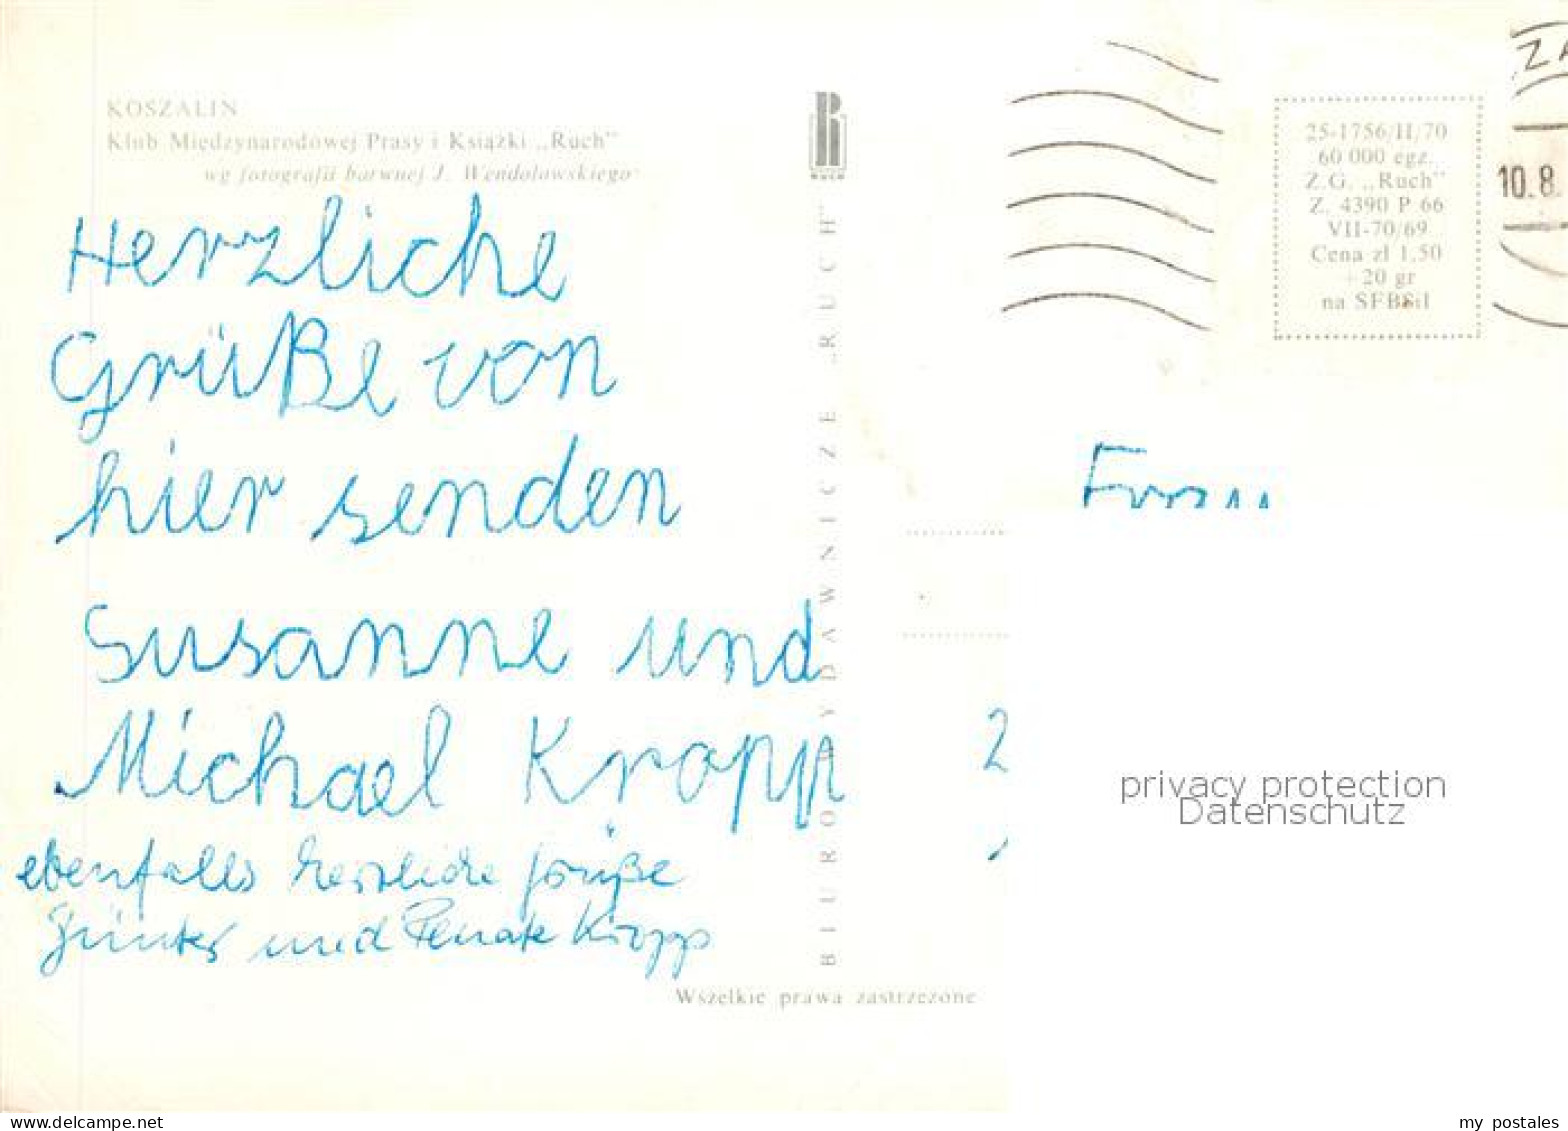 KOSZALIN
Klub Międzynarodowej Prasy i Książki „Ruch”
wg fotografii barwnej J. Wendołowskiego
Herzliche
Grüße von
hier senden
Susanne und
Michael Kropp
ebenfalls herzliche Grüße
Günter und Renate Kropp
RUCH
BIURO WYDAWNICZE „RUCH”
Wszelkie prawa zastrzeżone
25-1756/II/70
60 000 egz.
Z.G. „Ruch”
Z. 4390 P 66
VII-70/69
Cena zł 1,50
+ 20 gr
na SFBSiI
ZA
10.8.
2
privacy protection
Datenschutz
my postales